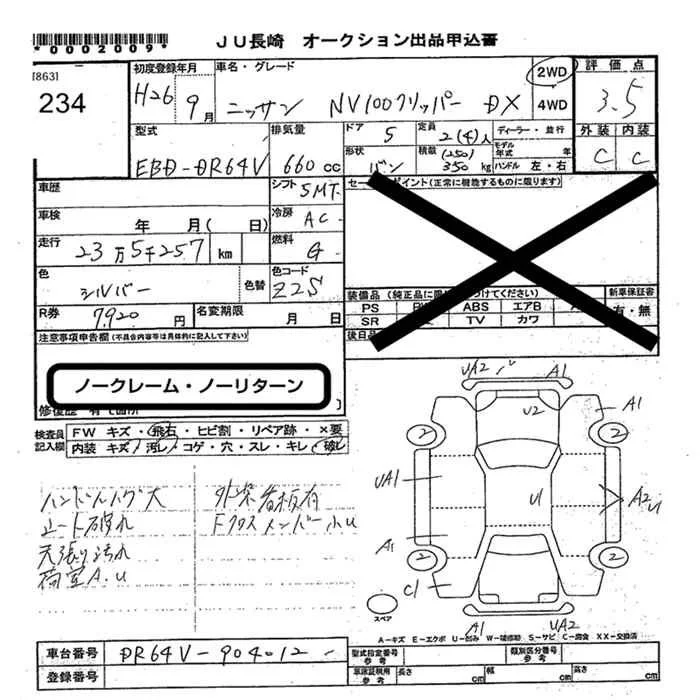 *0002009*
JU長崎 オークション出品申込書
[863]
234
初度登録年月
H26 9月
車名・グレード
ニッサン NV100クリッパー DX
2WD
4WD
評価点
3.5
外装 内装
C C
型式
EBD-DR64V
排気量
660cc
ドア 5
定員 2(4)人
ディーラー・並行
モデル年式 年
形状
バン
積載
(250)
350 kg
ハンドル 左・右
車歴
シフト 5MT
車検
年 月( 日)
冷房 AC
走行
23万5千257 km
燃料 G
色
シルバー
色替
色コード
Z2S
R券
7,920円
名変期限
月 日
ポイント(正常に機能するものに限ります)
装備品
PS
ABS
エアB
SR
TV
カワ
新車保証書
有・無
後日品
注意事項申告欄(不具合内容等は具体的に記入して下さい)
ノークレーム・ノーリターン
修復歴
検査員記入欄
FW キズ・飛石・ヒビ割・リペア跡・×要
内装 キズ・汚レ・コゲ・穴・スレ・キレ・破レ
シート破れ
天張り汚れ
荷室A.U
外装看板有
FクロスメンバーU
UA2
A1
U2
A1
2
2
UA1
U
A2
U
A1
2
2
C1
A1
UA2
スペア
A-キズ E-エクボ U-凹み W-補修跡 S-サビ C-腐食 XX-交換済
車台番号
DR64V-904012
登録番号
型式指定番号
参考
類別区分番号
参考
車庫証明用
参考
長さ cm
幅 cm
高さ cm